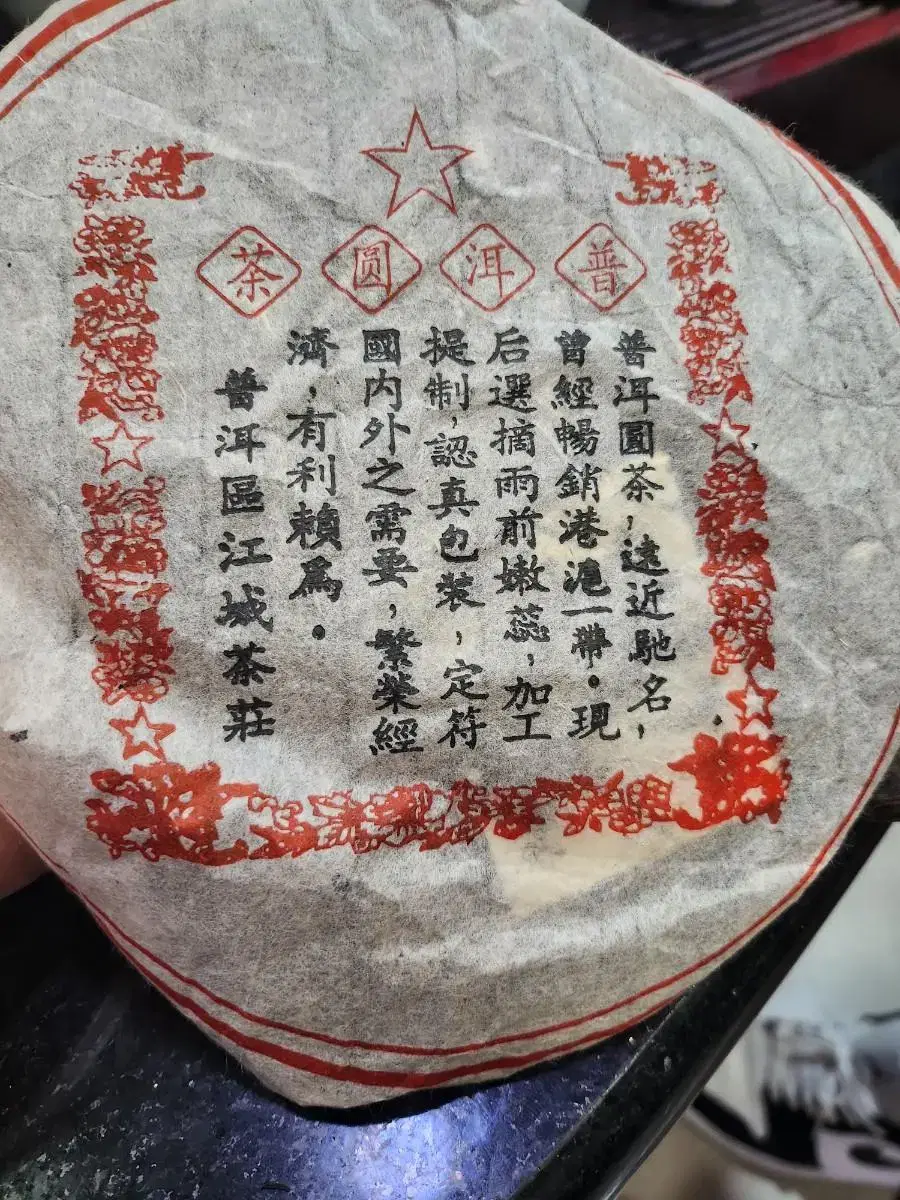 普洱圆茶
普洱圓茶，遠近馳名，
曾經暢銷港滬一帶。現
后選摘雨前嫩蕊，加工
提制，認真包装，定符
國内外之需要，繁榮經
濟，有利賴焉。
普洱區江城茶莊